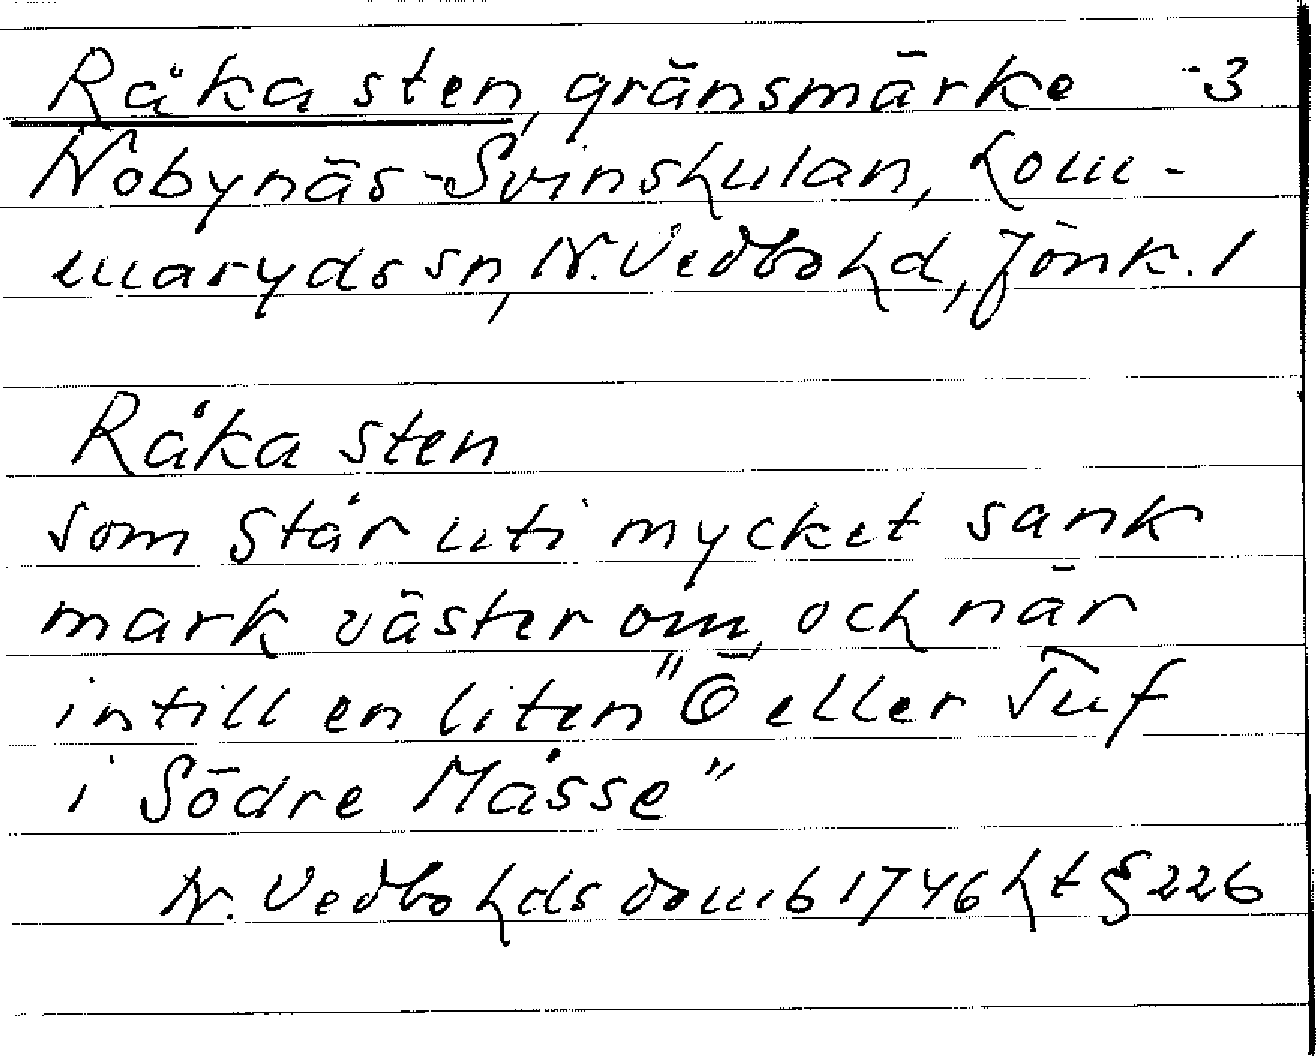 Råka sten, gränsmärke -3
Nobynäs-Svinshulan, Lom-
maryds sn, N. Vedbo hd, Jönk. l
Råka sten
som står uti mycket sank
mark väster om, och när
intill en liten "Ö eller Tuf
i Södre Måsse"
N. Vedbo hds domb 1746 ht § 226